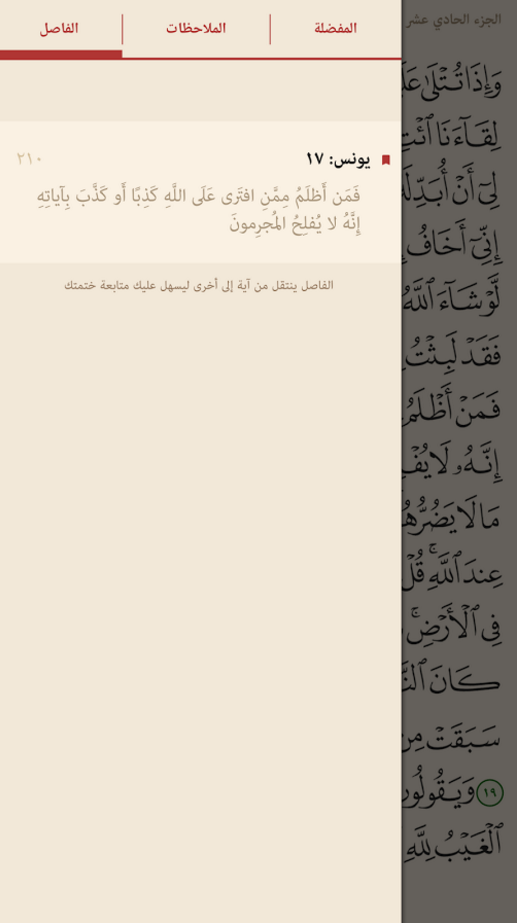 المفضلة
الملاحظات
الفاصل
يونس: ١٧
٢١٠
فَمَن أَظلَمُ مِمَّنِ افتَرى عَلَى اللَّهِ كَذِبًا أَو كَذَّبَ بِآياتِهِ
إِنَّهُ لا يُفلِحُ المُجرِمونَ
الفاصل ينتقل من آية إلى أخرى ليسهل عليك متابعة ختمتك
الجزء الحادي عشر
وَإِذَا تُتْلَىٰ
لِقَآءَنَا ٱئْتِ
لِىٓ أَنْ أُبَدِّلَهُ
إِنِّىٓ أَخَافُ
لَّوْ شَآءَ ٱللَّهُ
فَقَدْ لَبِثْتُ
فَمَنْ أَظْلَمُ
إِنَّهُۥ لَا
مَا لَا يَضُرُّهُ
عِندَ ٱللَّهِۚ قُلْ
فِى ٱلْأَرْضِۚ
كَانَ
سَبَقَتْ مِن
١٩ وَيَقُولُو
ٱلْغَيْبُ لِلَّهِ